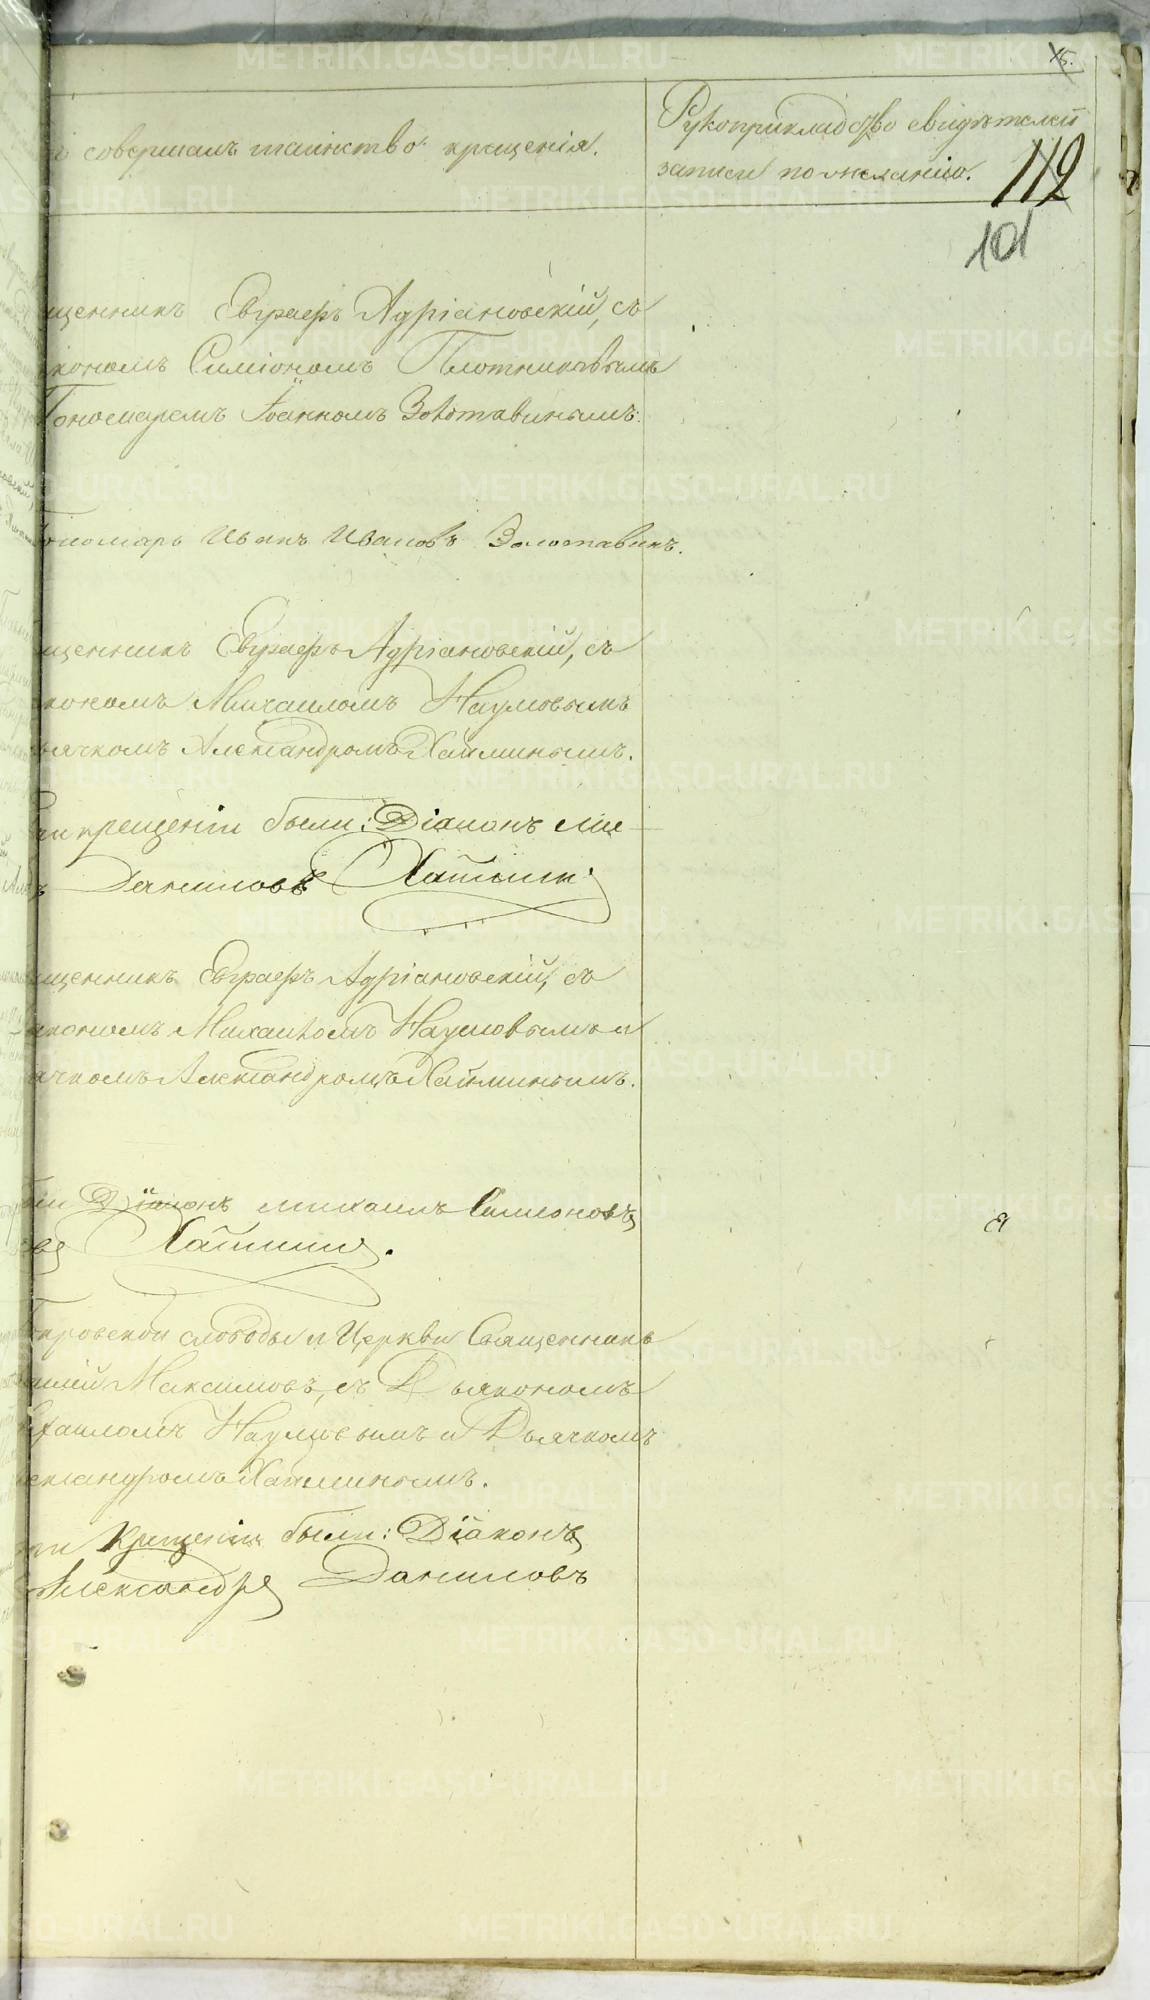 15.
совершалъ таинство крещенія.
Рукоприкладство свидѣтелей
записи по желанію.
112
101
щенникъ Евграфъ Адріановскій, съ
кономъ Симіономъ Плотниковымъ
Пономаремъ Іоанномъ Золотавинымъ.
ономарь Иванъ Ивановъ Золотавинъ.
щенникъ Евграфъ Адріановскій, съ
кономъ Михаиломъ Наумовымъ
ьячкомъ Александромъ Хайминымъ.
ри крещеніи были: Діаконъ Ми
Даниловъ
щенникъ Евграфъ Адріановскій, съ
кономъ Михаиломъ Наумовымъ и
ячкомъ Александромъ Хайминымъ.
Діаконъ Михаилъ Симионовъ
кровской слободы и Церкви Священникъ
Максимовъ, съ Дьякономъ
хаиломъ Наумовымъ и Дьячкомъ
ександромъ Хайминымъ.
ри Крещеніи были: Діаконъ
Александръ Даниловъ
METRIKI.GASO-URAL.RU